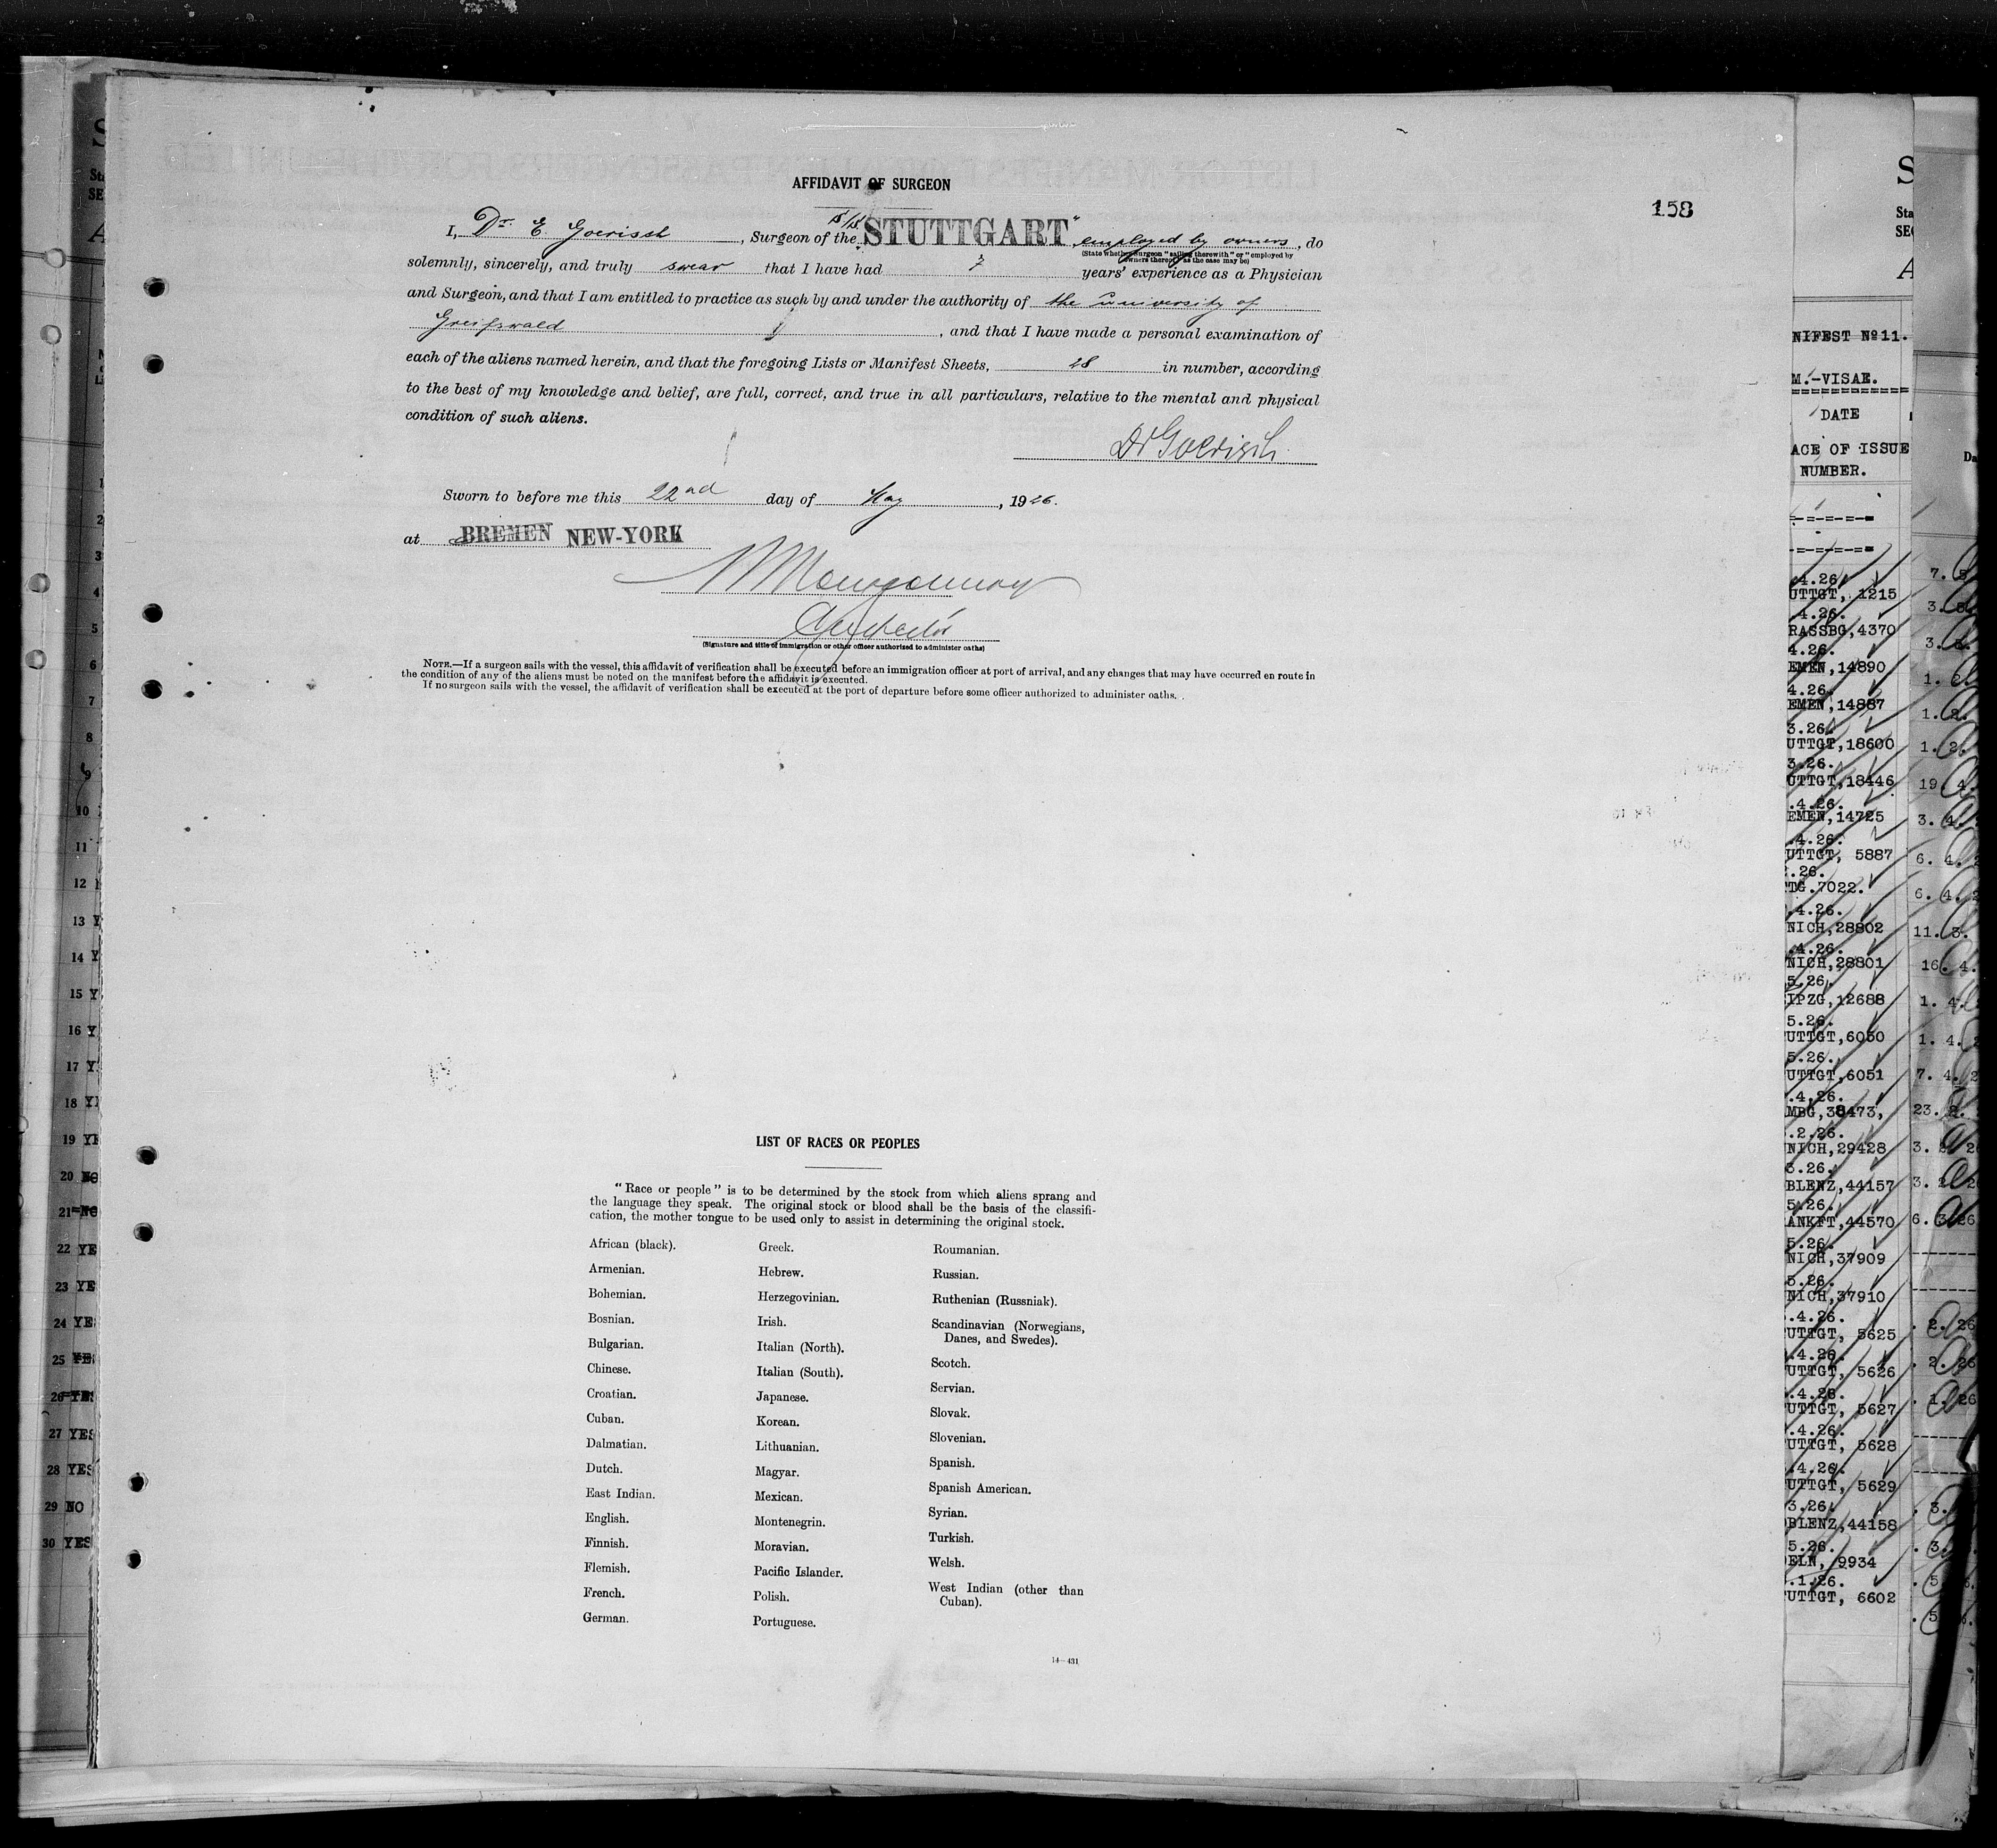 AFFIDAVIT OF SURGEON
158
I, Dr. E. Goerisch, Surgeon of the S/S "STUTTGART" employed by owners, do
(State whether surgeon "sailing therewith" or "employed by owners thereof," as the case may be)
solemnly, sincerely, and truly swear that I have had 7 years' experience as a Physician
and Surgeon, and that I am entitled to practice as such by and under the authority of the university of
Greifswald, and that I have made a personal examination of
each of the aliens named herein, and that the foregoing Lists or Manifest Sheets, 28 in number, according
to the best of my knowledge and belief, are full, correct, and true in all particulars, relative to the mental and physical
condition of such aliens.
Dr Goerisch
Sworn to before me this 22nd day of May, 1926.
at BREMEN NEW-YORK
(Signature and title of immigration or other officer authorized to administer oaths)
NOTE.—If a surgeon sails with the vessel, this affidavit of verification shall be executed before an immigration officer at port of arrival, and any changes that may have occurred en route in
the condition of any of the aliens must be noted on the manifest before the affidavit is executed.
If no surgeon sails with the vessel, the affidavit of verification shall be executed at the port of departure before some officer authorized to administer oaths.
LIST OF RACES OR PEOPLES
"Race or people" is to be determined by the stock from which aliens sprang and
the language they speak. The original stock or blood shall be the basis of the classifi-
cation, the mother tongue to be used only to assist in determining the original stock.
African (black).
Armenian.
Bohemian.
Bosnian.
Bulgarian.
Chinese.
Croatian.
Cuban.
Dalmatian.
Dutch.
East Indian.
English.
Finnish.
Flemish.
French.
German.
Greek.
Hebrew.
Herzegovinian.
Irish.
Italian (North).
Italian (South).
Japanese.
Korean.
Lithuanian.
Magyar.
Mexican.
Montenegrin.
Moravian.
Pacific Islander.
Polish.
Portuguese.
Roumanian.
Russian.
Ruthenian (Russniak).
Scandinavian (Norwegians,
Danes, and Swedes).
Scotch.
Servian.
Slovak.
Slovenian.
Spanish.
Spanish American.
Syrian.
Turkish.
Welsh.
West Indian (other than
Cuban).
14—431
NIFEST Nº 11.
M.-VISAE.
DATE
ACE OF ISSUE
NUMBER.
4.26.
UTTGT, 1215
4.26.
RASSBG,4370
4.26.
EMEN,14890
4.26.
EMEN,14887
3.26.
UTTGT,18600
3.26.
UTTGT,18446
.4.26.
EMEN,14725
.4.26.
UTTGT, 5887
.26.
TG.7022.
.4.26.
NICH,28802
.4.26.
NICH,28801
5.26.
IPZG,12688
5.26.
UTTGT,6050
5.26.
UTTGT,6051
.4.26.
MBG,38473,
.2.26.
NICH,29428
3.26.
BLENZ,44157
5.26.
ANKFT,44570
5.26.
NICH,37909
5.26.
NICH,37910
.4.26.
UTTGT, 5625
.4.26.
UTTGT, 5626
.4.26.
UTTGT, 5627
.4.26.
UTTGT, 5628
.4.26.
UTTGT, 5629
3.26.
BLENZ,44158
5.26.
ELN, 9934
.1.26.
UTTGT, 6602